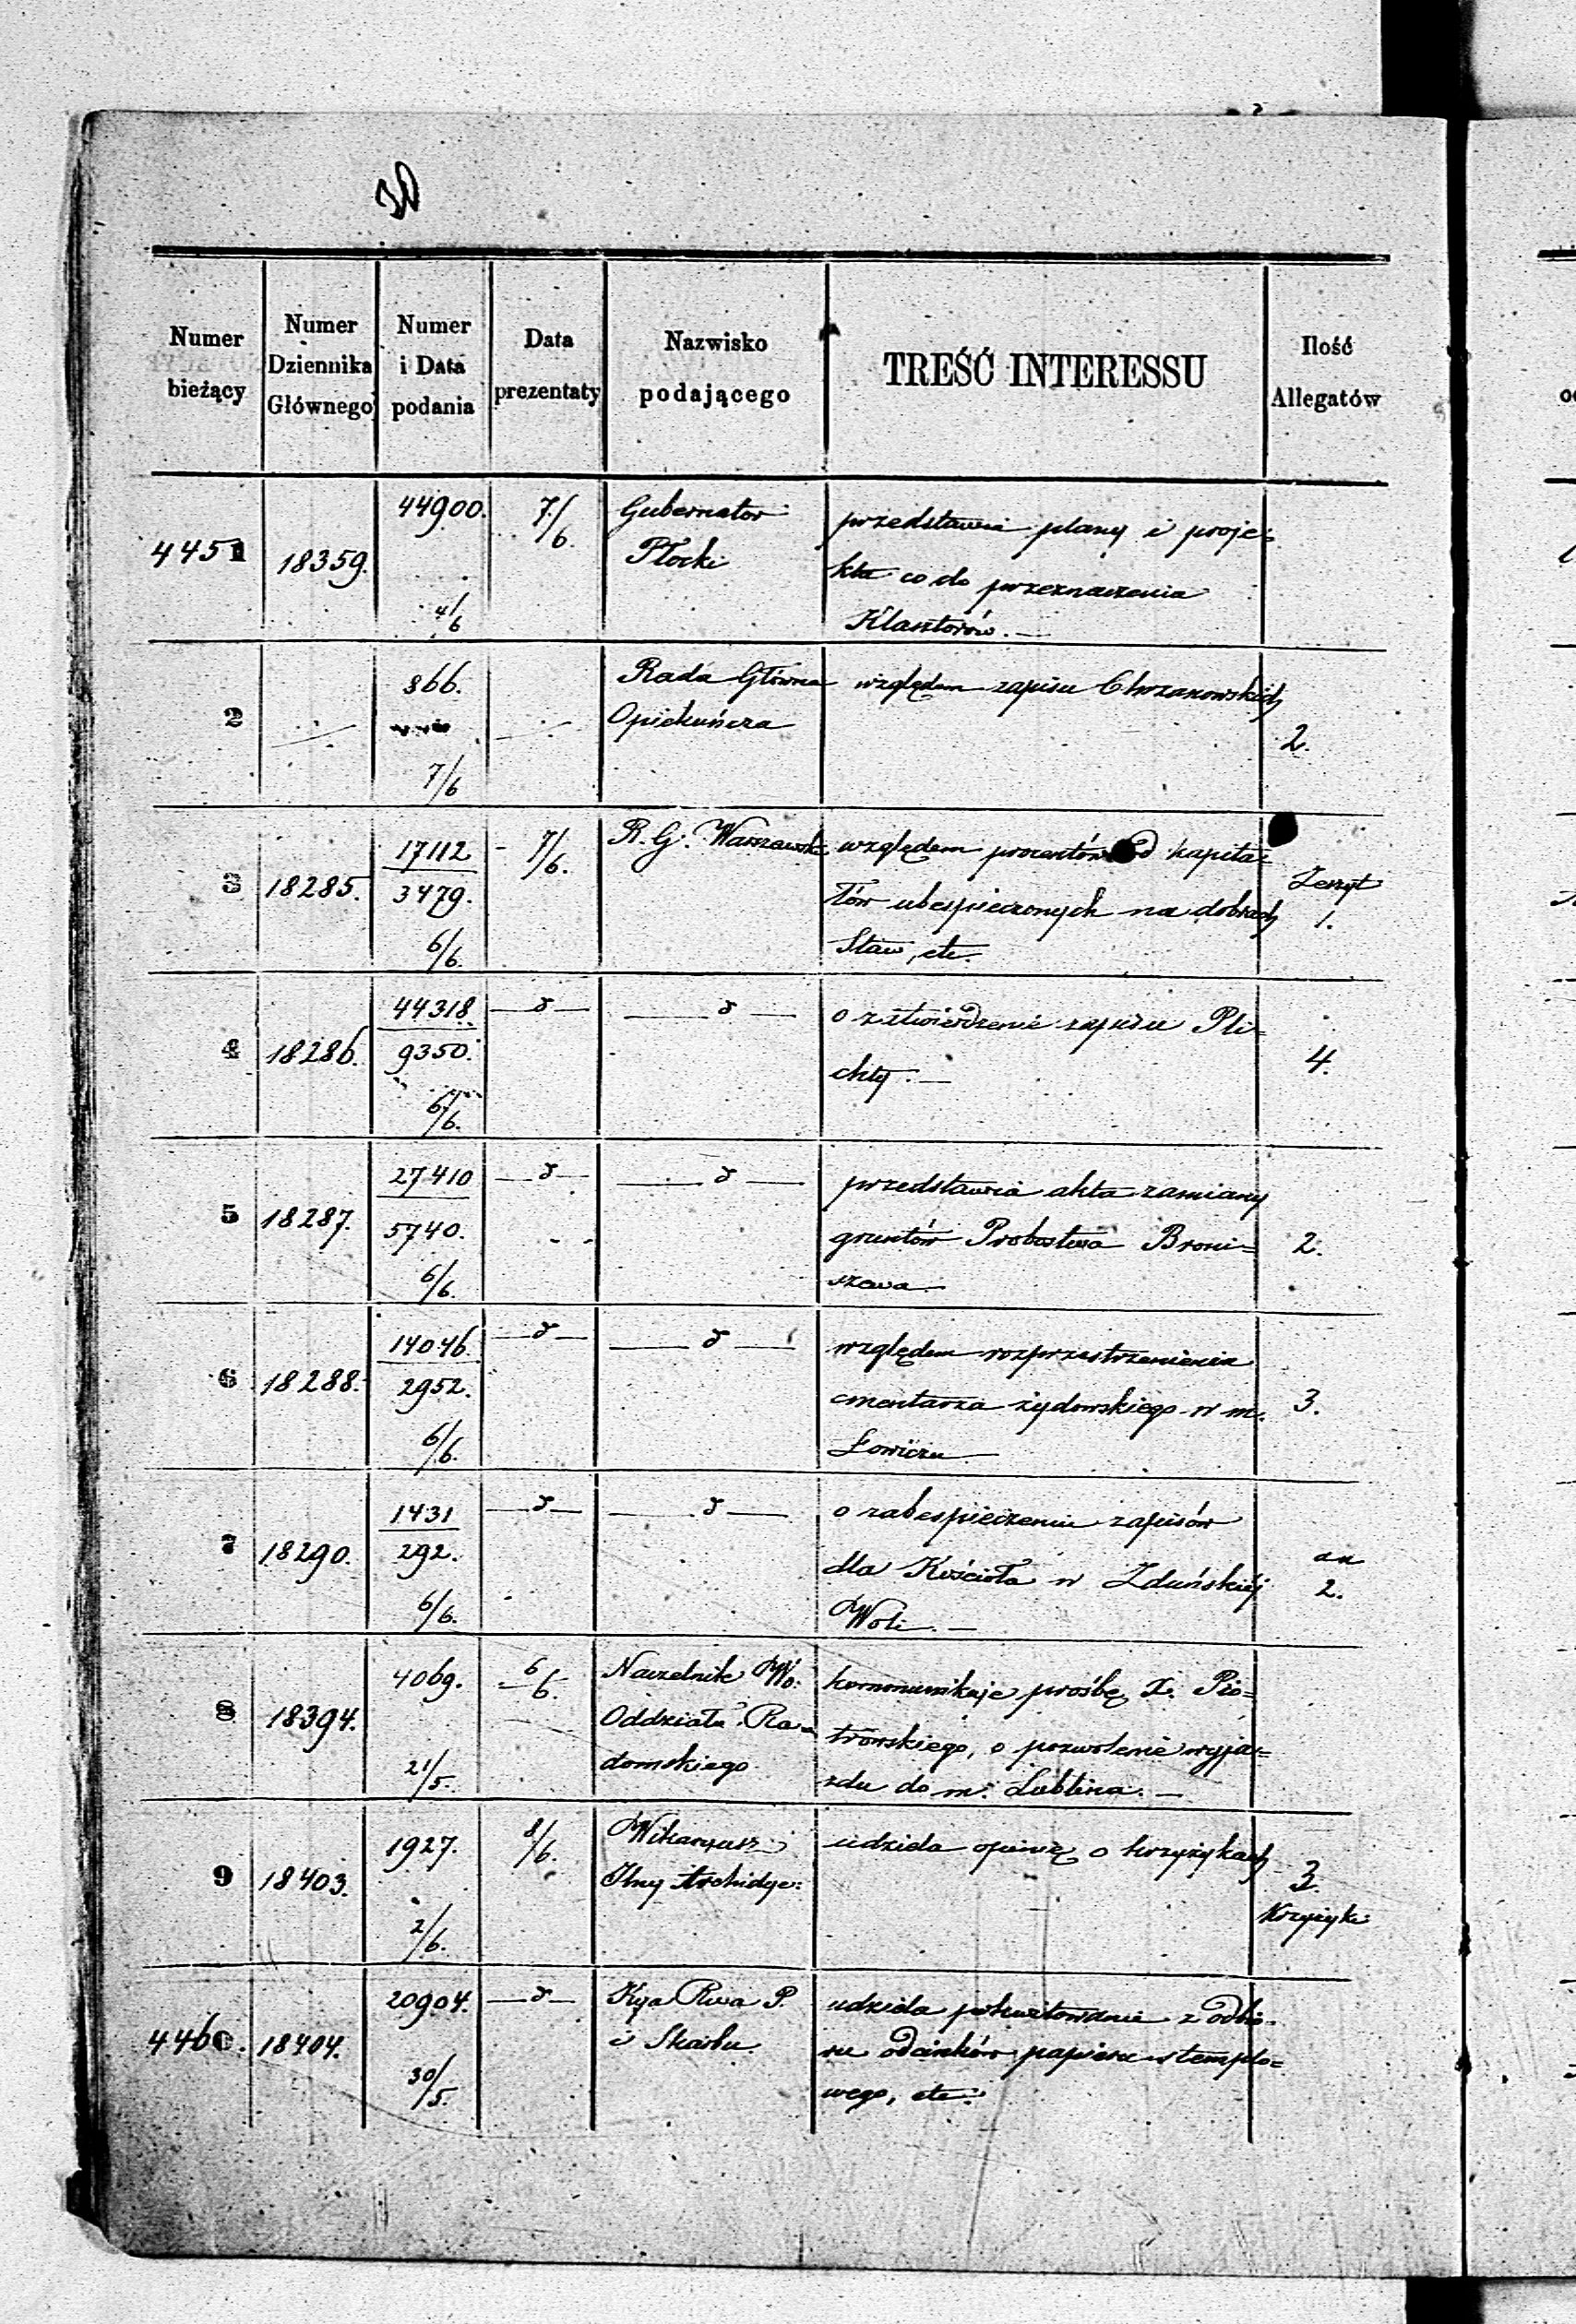 Numer bieżący
Numer Dziennika Głównego
Numer i Data podania
Data prezentaty
Nazwisko podającego
TREŚĆ INTERESSU
Ilość Allegatów
4451
18359.
44900.
4/6
7/6.
Gubernator
Płocki
przedstawia plany i proje=
kta co do przeznaczenia
Klasztorów. —
2
866.
7/6
Rada Główna
Opiekuńcza
względem zapisu Chrzanowskich
2.
3
18285.
17112
3479.
6/6.
7/6.
R. G. Warszawski
względem procentów od kapita=
łów ubespieczonych na dobrach
Staw, etc.
Zeszyt
1.
4
18286.
44318
9350.
6/6.
— d —
— d —
o zatwierdzenie zapisu Pli=
chty. —
4.
5
18287.
27410
5740.
6/6.
— d —
— d —
przedstawia akta zamiany
gruntów Probostwa Broni=
szewa —
2.
6
18288.
14046.
2952.
6/6.
— d —
— d —
względem rozprzestrzenienia
cmentarza żydowskiego w m.
Łowiczu —
3.
7
18290.
1431
292.
6/6.
— d —
— d —
o zabespieczeniu zapisów
dla Kościoła w Zduńskiéj
Woli. —
2.
8
18394.
4069.
21/5.
6/6.
Naczelnik Wo:
Oddziału Ra=
domskiego
kommunikuje prośbę X. Pio=
trowskiego, o pozwolenie wyja=
zdu do m. Lublina. —
9
18403.
1927.
2/6.
8/6.
Wikaryusz
Jlny Archidye:
udziela opinię o krzyżykach
3.
Krzyżyki
4460.
18404.
20904.
30/5.
— d —
Kya Rwa P.
i Skarbu.
udziela pokwitowanie z odbio=
ru odcinków papieru stemplo=
wego, etc.